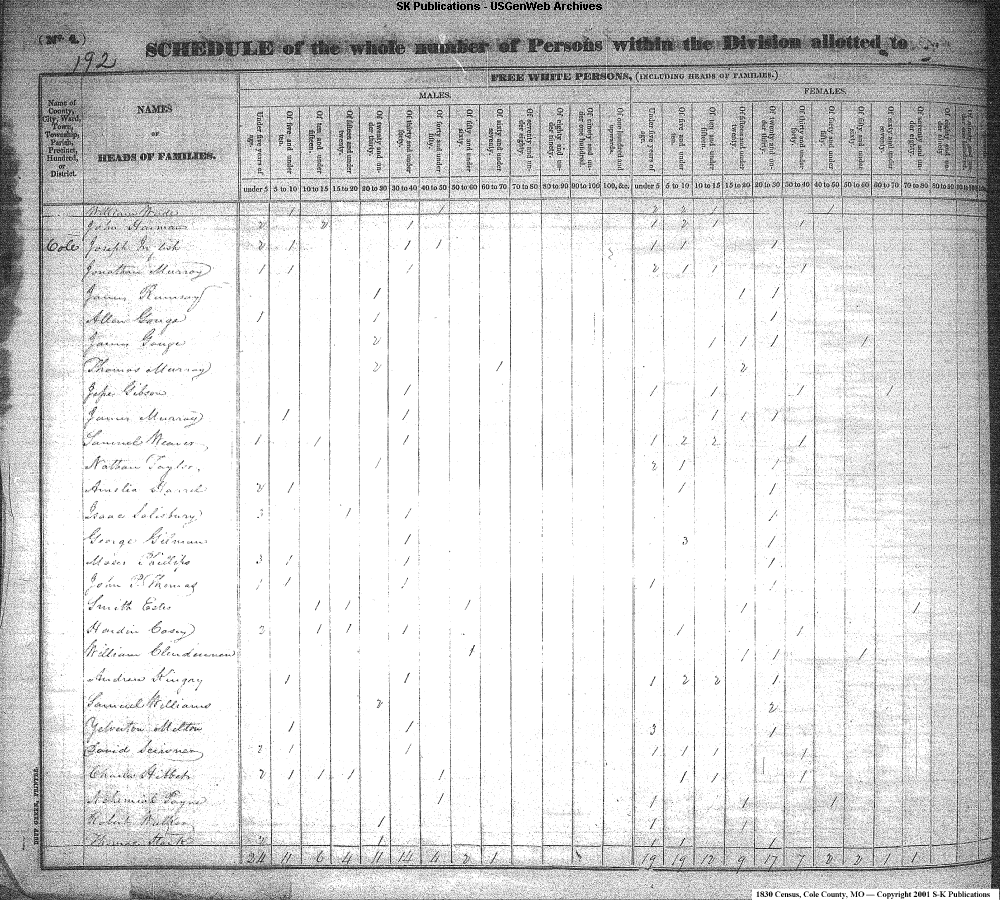 SK Publications - USGenWeb Archives
(No. 4.)
192
SCHEDULE of the whole number of Persons within the Division allotted to
FREE WHITE PERSONS, (INCLUDING HEADS OF FAMILIES.)
MALES.
FEMALES.
Name of County, City, Ward, Town, Township, Parish, Precinct, Hundred, or District.
NAMES
OR
HEADS OF FAMILIES.
Under five years of age.
Of five and under ten.
Of ten and under fifteen.
Of fifteen and under twenty.
Of twenty and under thirty.
Of thirty and under forty.
Of forty and under fifty.
Of fifty and under sixty.
Of sixty and under seventy.
Of seventy and under eighty.
Of eighty and under ninety.
Of ninety and under one hundred.
Of one hundred and upwards.
Under five years of age.
Of five and under ten.
Of ten and under fifteen.
Of fifteen and under twenty.
Of twenty and under thirty.
Of thirty and under forty.
Of forty and under fifty.
Of fifty and under sixty.
Of sixty and under seventy.
Of seventy and under eighty.
under 5 5 to 10 10 to 15 15 to 20 20 to 30 30 to 40 40 to 50 50 to 60 60 to 70 70 to 80 80 to 90 90 to 100 100, &c. under 5 5 to 10 10 to 15 15 to 20 20 to 30 30 to 40 40 to 50 50 to 60 60 to 70 70 to 80 80 to 90
William Wade 1 1 2 2 1 1
John 2 2 1 1 2 1 1
Cole Joseph 2 1 1 1 1 1 1
Jonathan Murray 1 1 1 2 1 1 1
James Ramsay 1 1 1
Allen Gouge 1 1 1
James Gouge 2 1 1 1 1
Thomas Murray 2 1 2
Jesse Gibson 1 1 1 1 1
James Murray 1 1 1 1 1
Samuel Weaver 1 1 1 1 2 2 1
Nathan Taylor 1 2 1 1
Amelia 2 1 1 1
Isaac Salisbury 3 1 1 1
George Gilman 1 3 1
Moses Phillips 3 1 1 1
John P. Thomas 1 1 1 1 1
Smith Estes 1 1 1 1 1
Hardin Casey 2 1 1 1 1 1
William Clendennen 1 1 1 1
Andrew Kingry 1 1 1 2 2 1
Samuel Williams 2 2
Yelverton Melton 1 1 3 1
David Scrivner 2 1 1 1 1 1 1
Charles Hibbets 2 1 1 1 1 1 1 1
Nehemiah Payne 1 1 1 1
Robert Walker 1 1 1
Thomas 2 1 1 1 1
24 11 6 4 11 14 4 2 1 19 19 12 9 17 7 2 2 1 1
DUFF GREEN, PRINTER.
1830 Census, Cole County, MO — Copyright 2001 S-K Publications